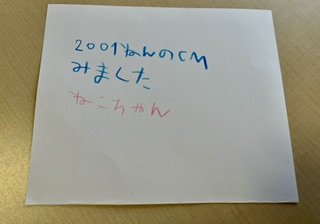 2001ねんのCM
みました
ねこちゃん